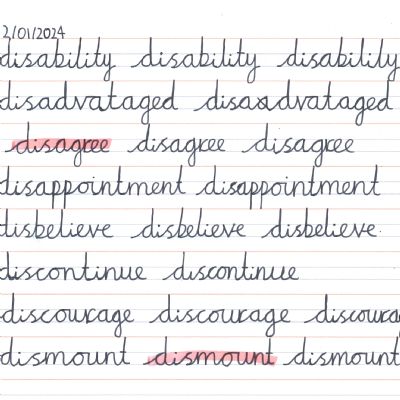 2/01/2024
disability disability disability
disadvataged disaadvataged
disagree disagree disagree
disappointment disappointment
disbelieve disbelieve disbelieve
discontinue discontinue
discourage discourage discourag
dismount dismount dismount